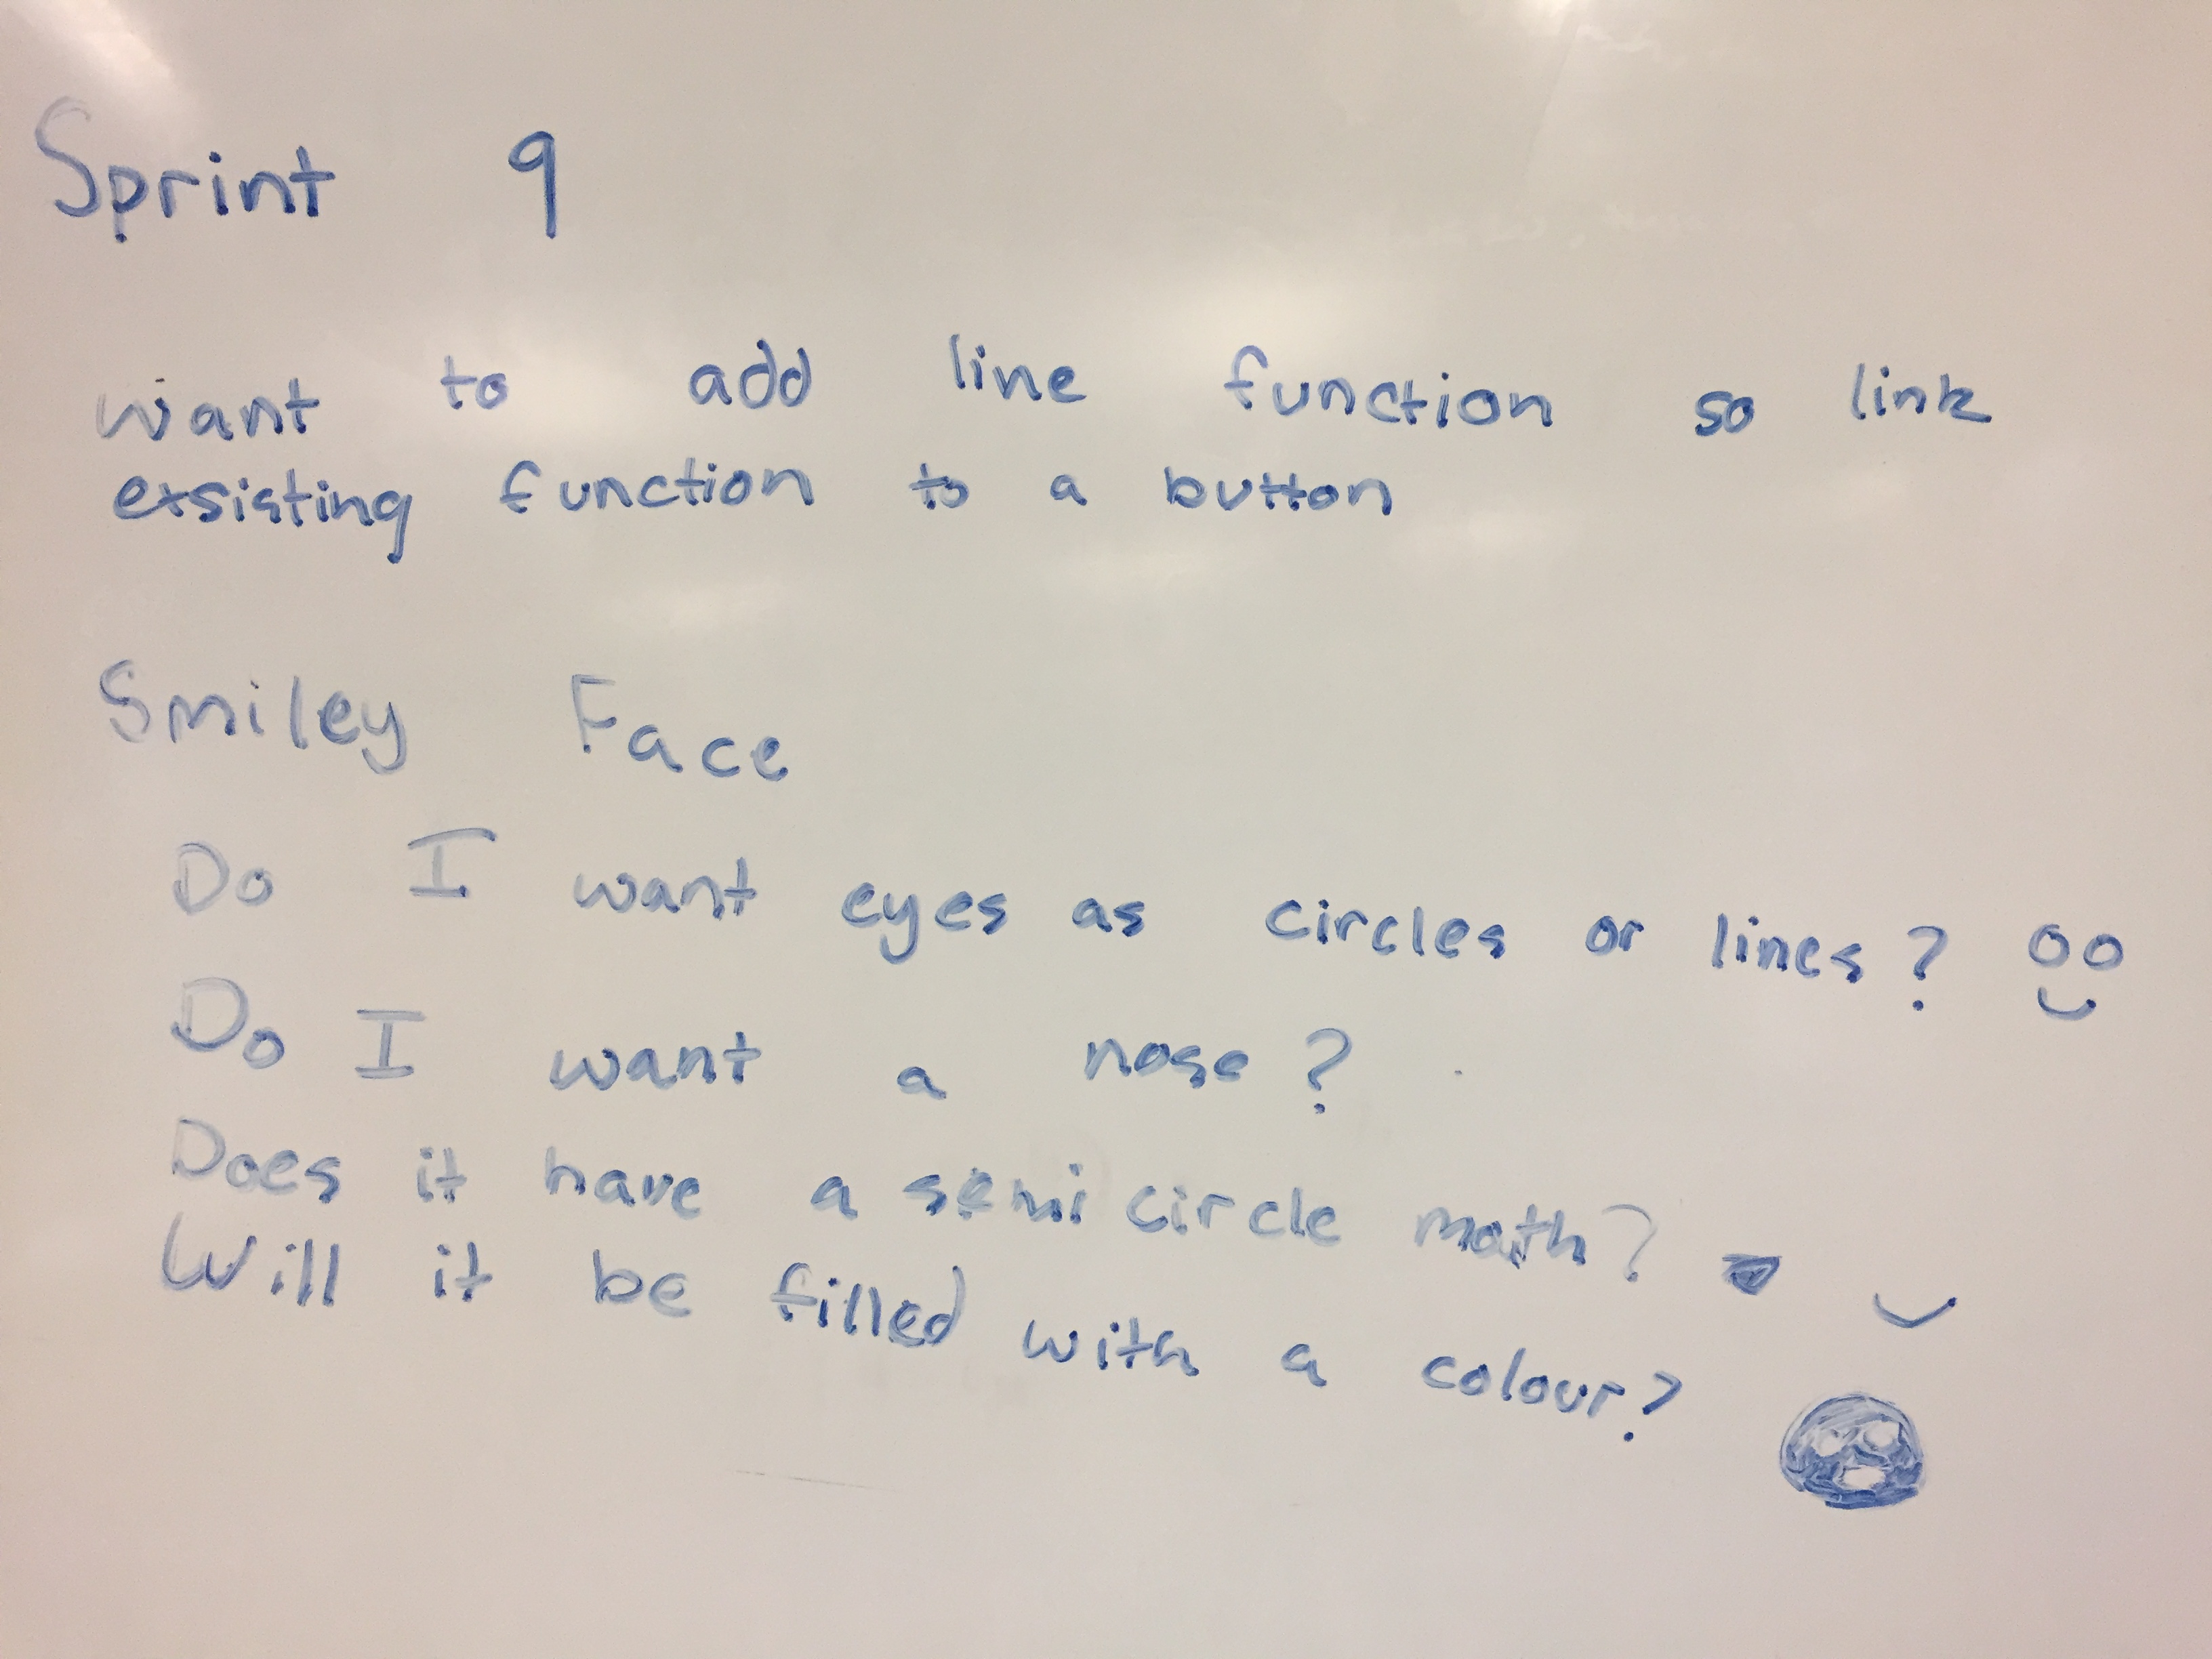 Sprint 9
want to add line function so link
exsisting function to a button
Smiley Face
Do I want eyes as circles or lines?
Do I want a nose?
Does it have a semi circle moth?
Will it be filled with a colour?